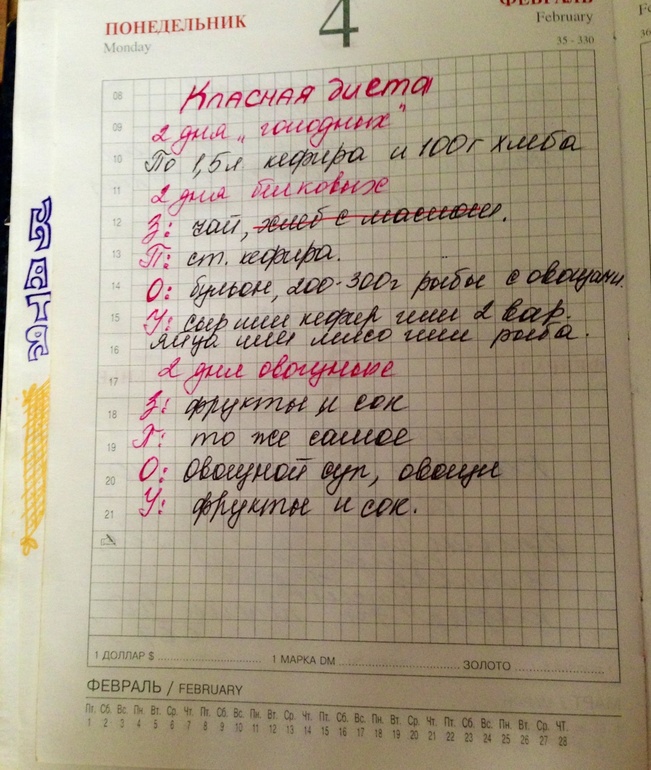 ПОНЕДЕЛЬНИК
Monday
4
ФЕВРАЛЬ
February
35 - 330
08
Класная диета
09
2 дня „голодных"
10
По 1,5л кефира и 100г хлеба
11
2 дня белковых
12
З: чай, хлеб с маслом.
13
П: ст. кефира.
14
О: бульон, 200-300г рыбы с овощами.
15
У: сыр или кефир или 2 вар.
16
яйца или мясо или рыба.
17
2 дня овощные
18
З: фрукты и сок
19
П: то же самое
20
О: овощной суп, овощи
21
У: фрукты и сок.
1 ДОЛЛАР $
1 МАРКА DM
ЗОЛОТО
ФЕВРАЛЬ / FEBRUARY
Пт. Сб. Вс. Пн. Вт. Ср. Чт. Пт. Сб. Вс. Пн. Вт. Ср. Чт. Пт. Сб. Вс. Пн. Вт. Ср. Чт. Пт. Сб. Вс. Пн. Вт. Ср. ЧТ.
1 2 3 4 5 6 7 8 9 10 11 12 13 14 15 16 17 18 19 20 21 22 23 24 25 26 27 28